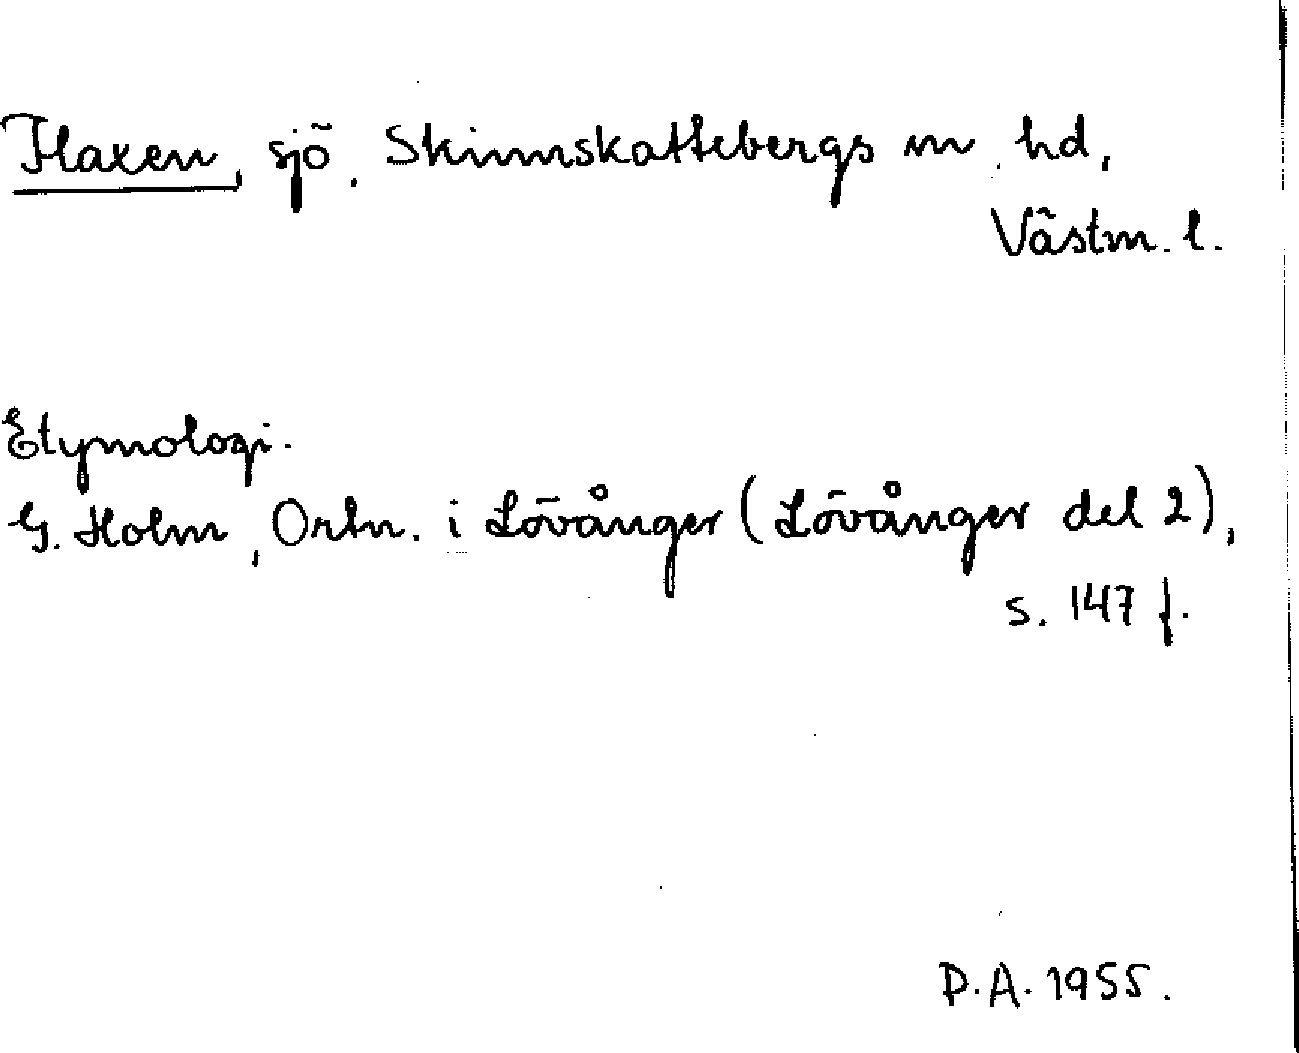 Flaxen, sjö, Skinnskattebergs sn, hd,
Västm. l.
Etymologi.
G. Holm, Ortn. i Lövånger (Lövånger del 2),
s. 147 f.
P.A. 1955.